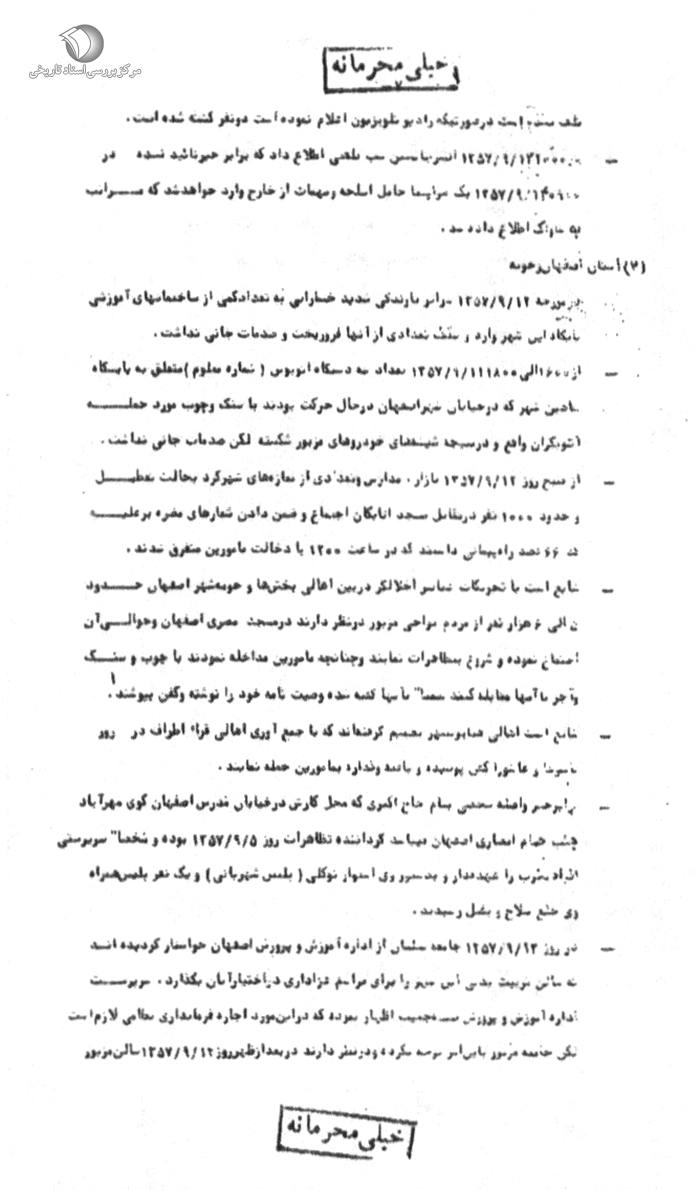 مرکز بررسی اسناد تاریخی
خیلی محرمانه
تلف شده است درصورتیکه رادیو تلویزیون اعلام نموده است دونفر کشته شده است .
اطلاع داد که برابر خبر تائید نشده در
۱۳۵۷/۹/ یک هواپیما حامل اسلحه ومهمات از خارج وارد خواهدشد که مــراتب
به ساواک اطلاع داده شد .
(۷) استان اصفهان وحومه
درمورخه ۱۳۵۷/۹/۱۲ برابر بارندگی شدید خساراتی به تعدادکمی از ساختمانهای آموزشی
پایگاه این شهر وارد و سقف تعدادی از آنها فروریخت و صدمات جانی نداشت .
– از ۱۶۰۰ الی ۱۸۰۰ ۱۳۵۷/۹/۱۱ تعداد سه دستگاه اتوبوس ( شماره معلوم ) متعلق به پایگاه
شهر که درخیابان شهراصفهان درحال حرکت بودند با سنگ وچوب مورد حملـــه
آشوبگران واقع و درنتیجه شیشه‌های خودروهای مزبور شکسته لکن صدمات جانی نداشت .
– از صبح روز ۱۳۵۷/۹/۱۲ بازار ، مدارس وتعدادی از مغازه‌های شهرکرد بحالت تعطیــل
و حدود ۱۰۰۰ نفر درمقابل مسجد اتابکان اجتماع و ضمن دادن شعارهای مضره برعلیــه
قصد راه‌پیمائی داشتند که در ساعت ۱۲۰۰ با دخالت مامورین متفرق شدند .
– شایع است با تحریکات عناصر اخلالگر دربین اهالی بخش‌ها و حومه‌شهر اصفهان حــدود
الی ۶ هزار نفر از مردم نواحی مزبور درنظر دارند درمسجد مصری اصفهان وحوالــی آن
اجتماع نموده و شروع بتظاهرات نمایند وچنانچه مامورین مداخله نمودند با چوب و سنــگ
وآجر با آنها مقابله کنند ضمنا" بآنها گفته شده وصیت نامه خود را نوشته وکفن بپوشند .
– شایع است اهالی همایونشهر تصمیم گرفته‌اند که با جمع آوری اهالی قراء اطراف در روز
تاسوعا و عاشورا کفن پوشیده و بمامورین حمله نمایند .
– برابرخبر واصله شخصی بنام حاج اکبری که محل کارش درخیابان مدرس اصفهان کوی مهرآباد
جنب حمام انصاری اصفهان میباشد گرداننده تظاهرات روز ۱۳۵۷/۹/۵ بوده و شخصا" سرپرستی
افراد مخرب را عهده‌دار و بدستور وی استوار توکلی ( پلیس شهربانی ) و یک نفر پلیس‌همراه
وی خلع سلاح و بقتل رسیدند .
– در روز ۱۳۵۷/۹/۱۳ جامعه معلمان از اداره آموزش و پرورش اصفهان خواستار گردیده انــد
که سالن تربیت بدنی این شهر را برای مراسم عزاداری دراختیارآنان بگذارد . سرپرســت
اداره آموزش و پرورش اظهار نموده که دراین‌مورد اجازه فرمانداری نظامی لازم‌است
لکن جامعه مزبور باین‌امر توجه نکرده ودرنظر دارند دربعدازظهرروز ۱۳۵۷/۹/۱۲ سالن‌مزبور
خیلی محرمانه